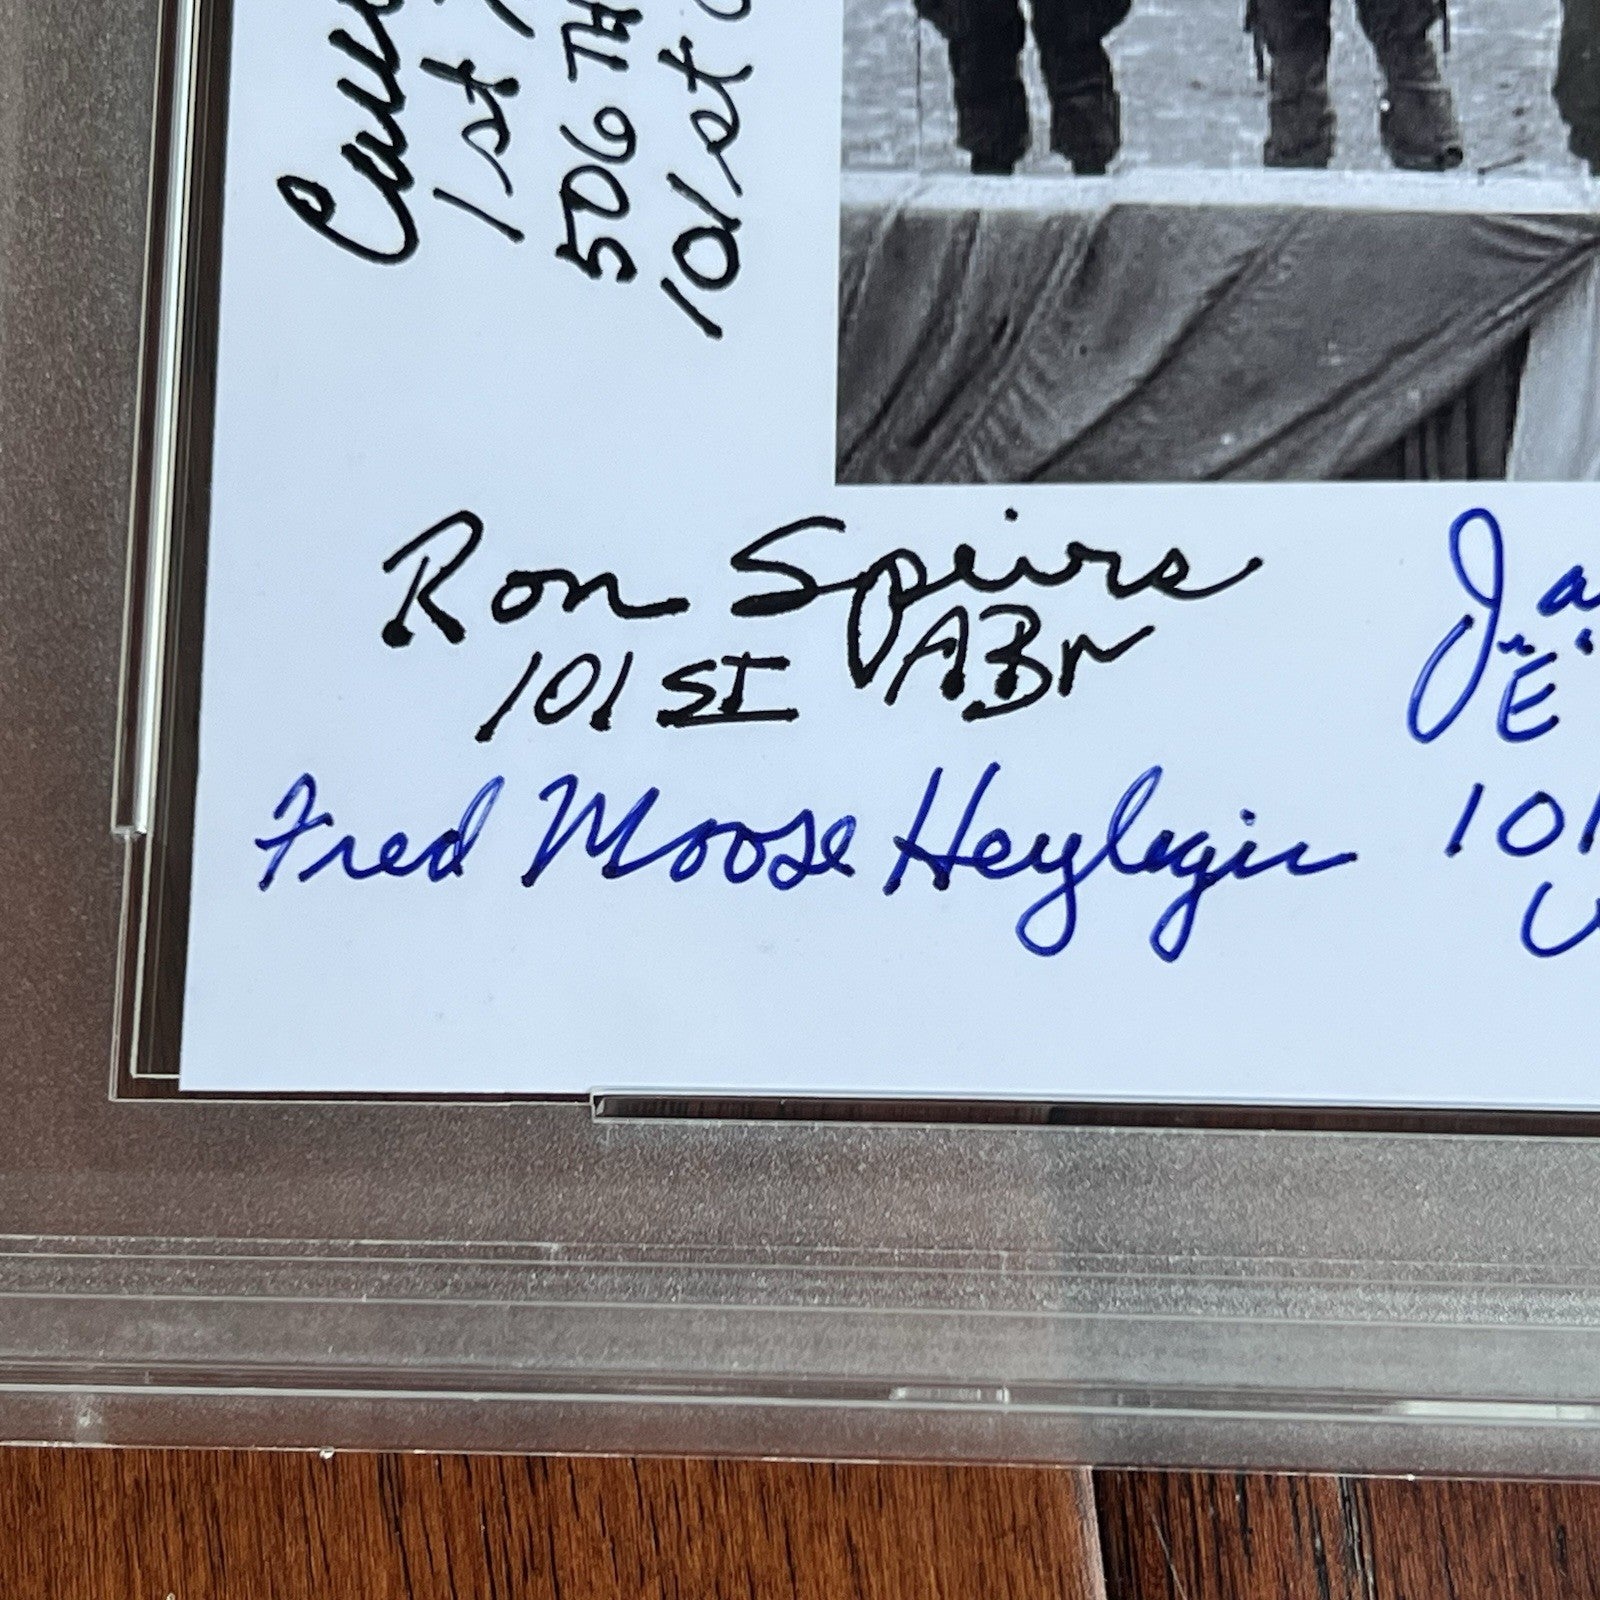 1st
506 TH
101st
Ron Speirs
101 ST ABN
Fred Moose Heyliger
E